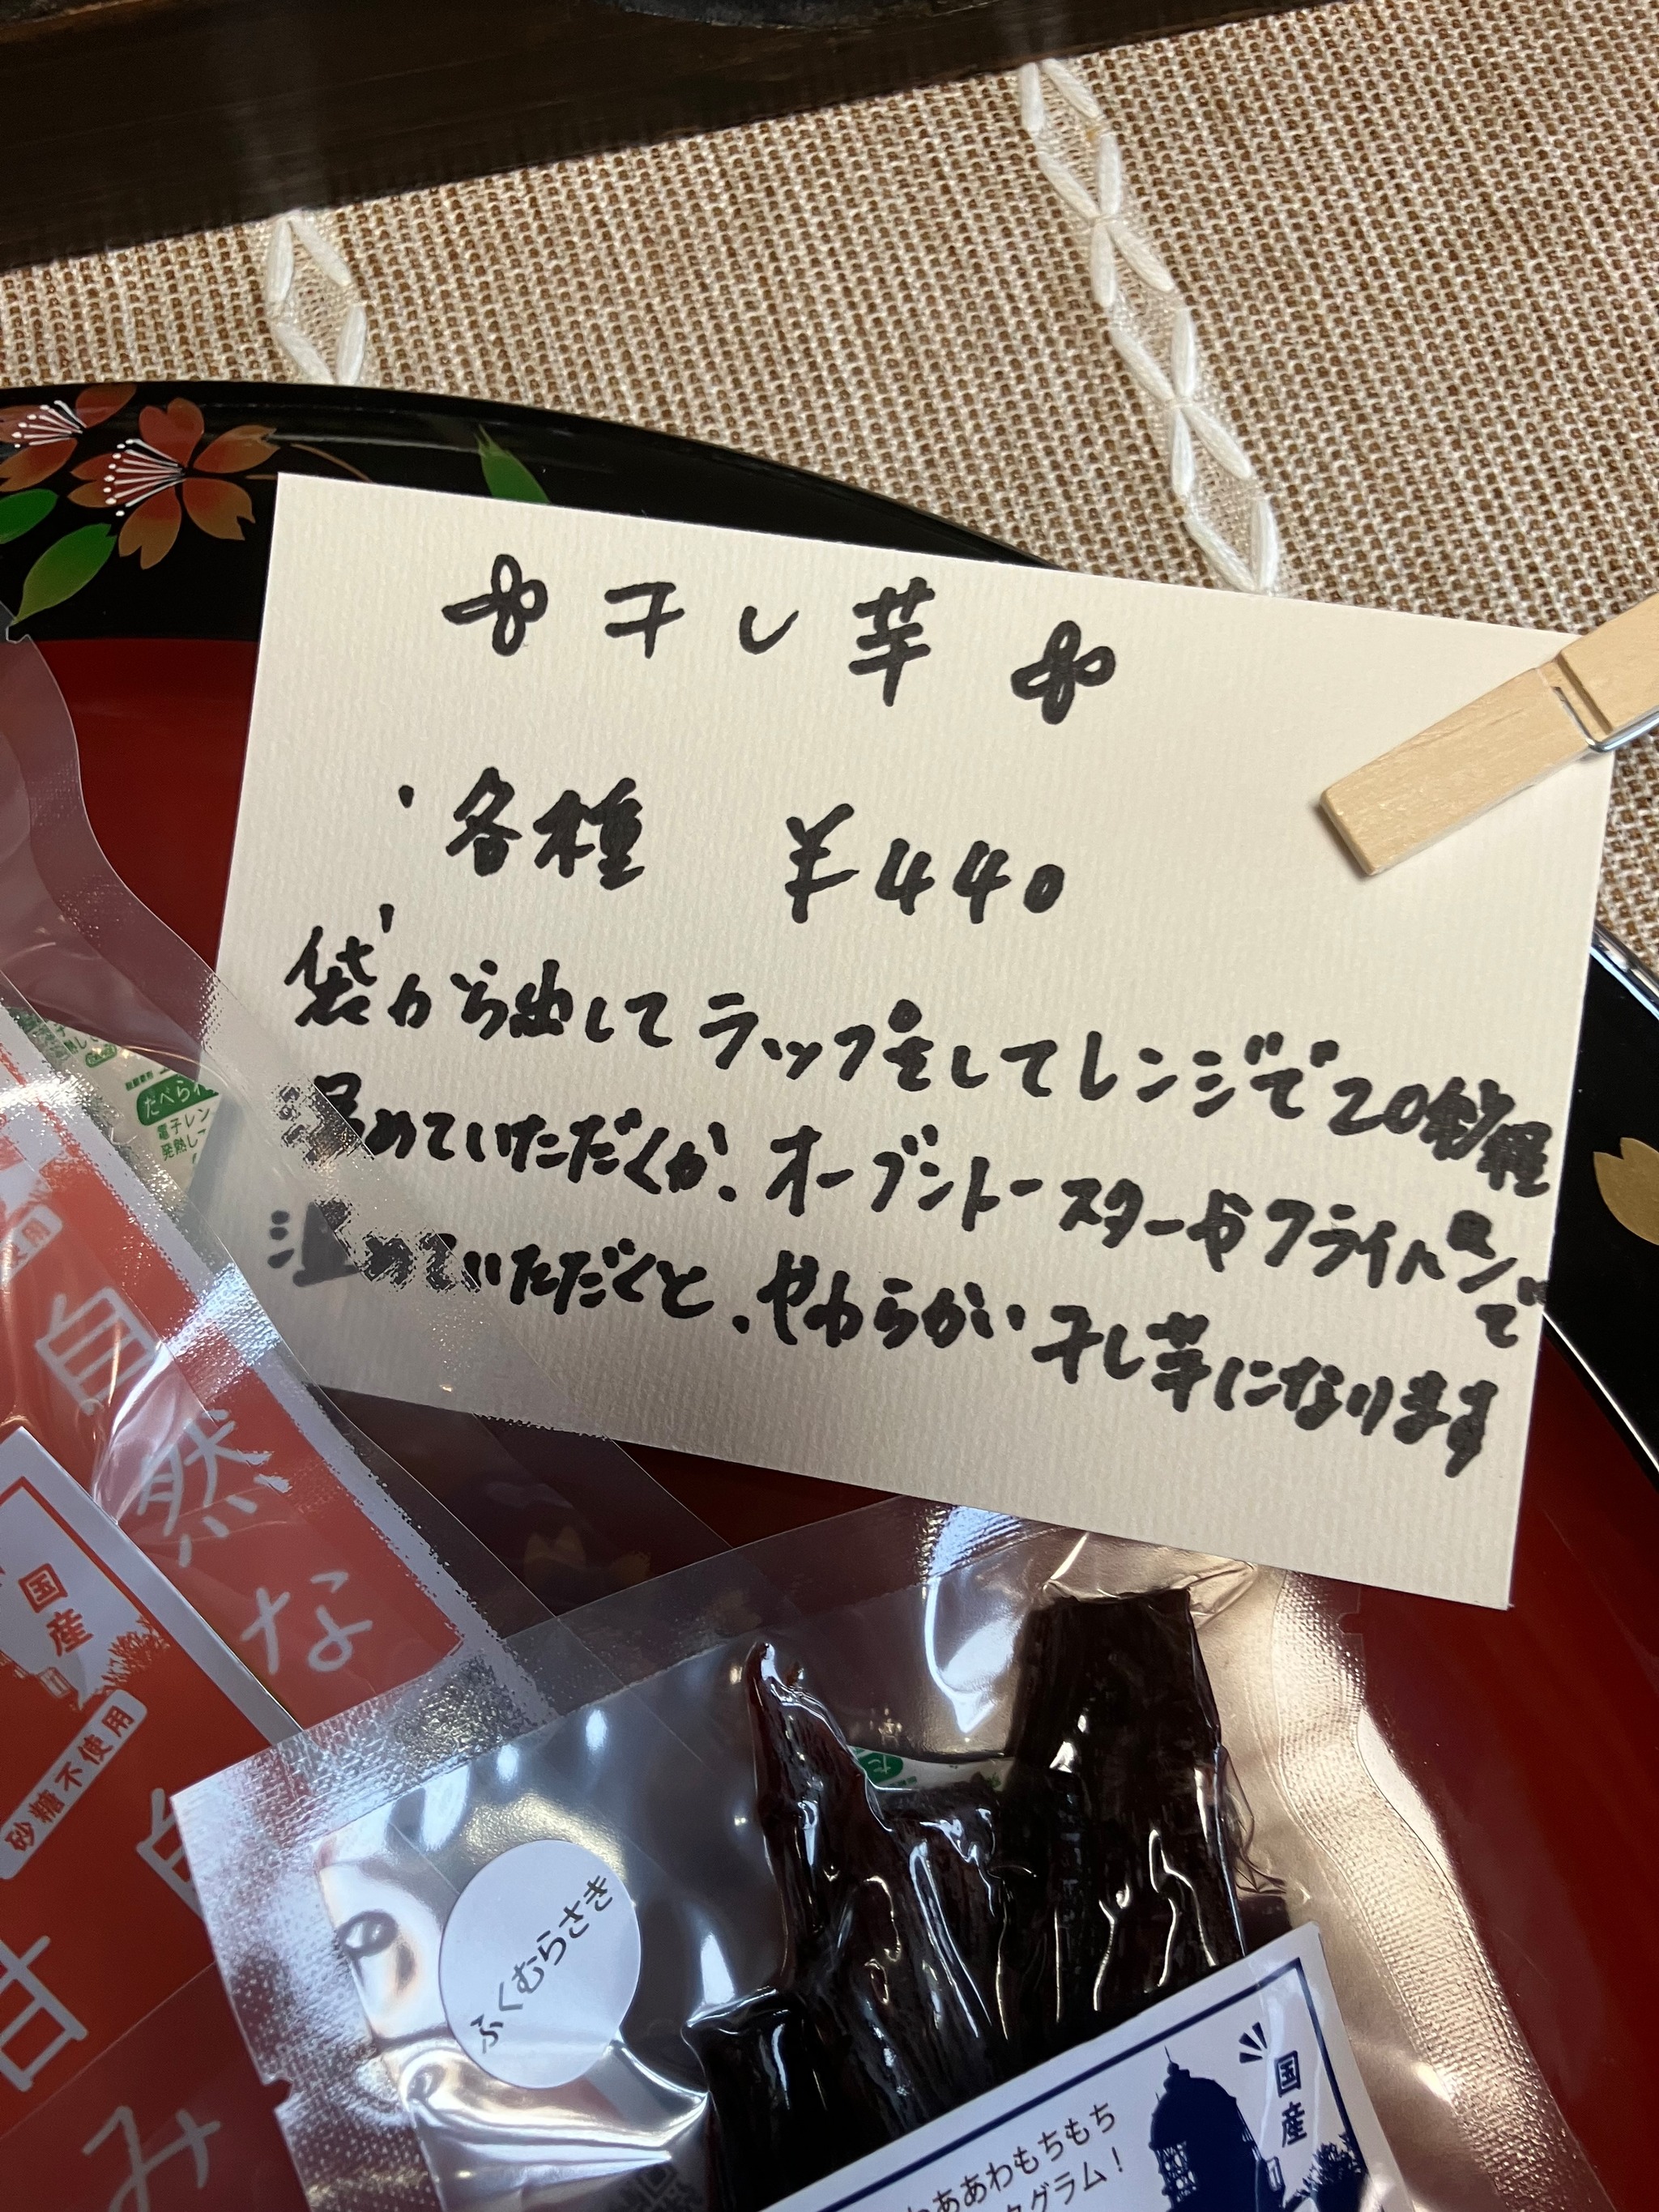 干し芋
・各種 ¥440
袋から出してラップをしてレンジで20秒程
温めていただくか、オーブントースターやフライパンで
温めていただくと、やわらかい干し芋になります
たべられ
電子レン
発熱し
使用
自然な
国産
砂糖不使用
自
甘み
ふくむらさき
国産
わああわもちもち
タグラム!